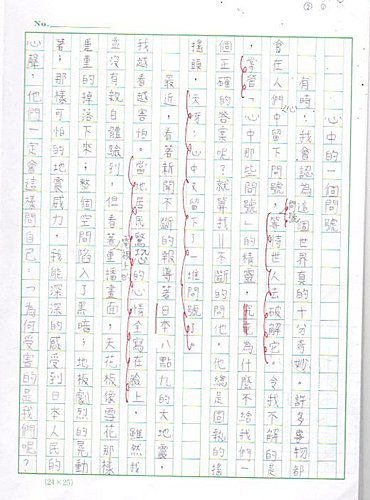 No.
心中的一個問號
有時，我會認為這個世界真的十分奇妙。許多事物都
會在人們心中留下問號，等待世人去破解它。令我不解的是
掌管「心中那些問號」的精靈，為什麼不給我們一
個正確的答案呢？就算我不斷的問他，他總是固執的搖
搖頭。天呀！心中又留下了一堆問號了。
最近，看著新聞不斷的報導著日本八點九的大地震，
我越看越害怕。當地居民驚恐的心情全寫在臉上。雖然我
並沒有親自體驗到，但看著電視上的重播畫面，天花板像雪花那樣
重重的掉落下來；整個空間陷入了黑暗；地板劇烈的晃動
著，那樣可怕的地震威力，我能深深的感受到日本人民的
心聲，他們一定會這樣問自己：「為何受害的是我們呢？
(24×25)